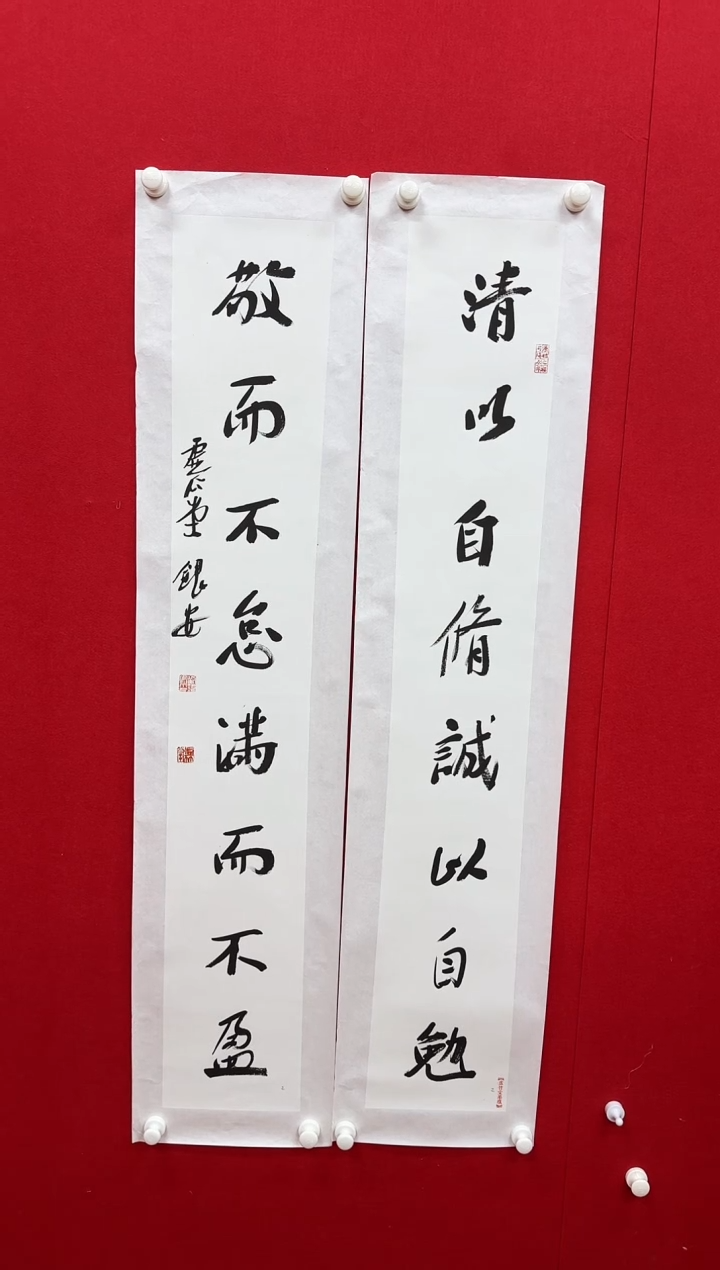 清以自脩誠以自勉
敬而不怠满而不盈
虚心堂 銀安